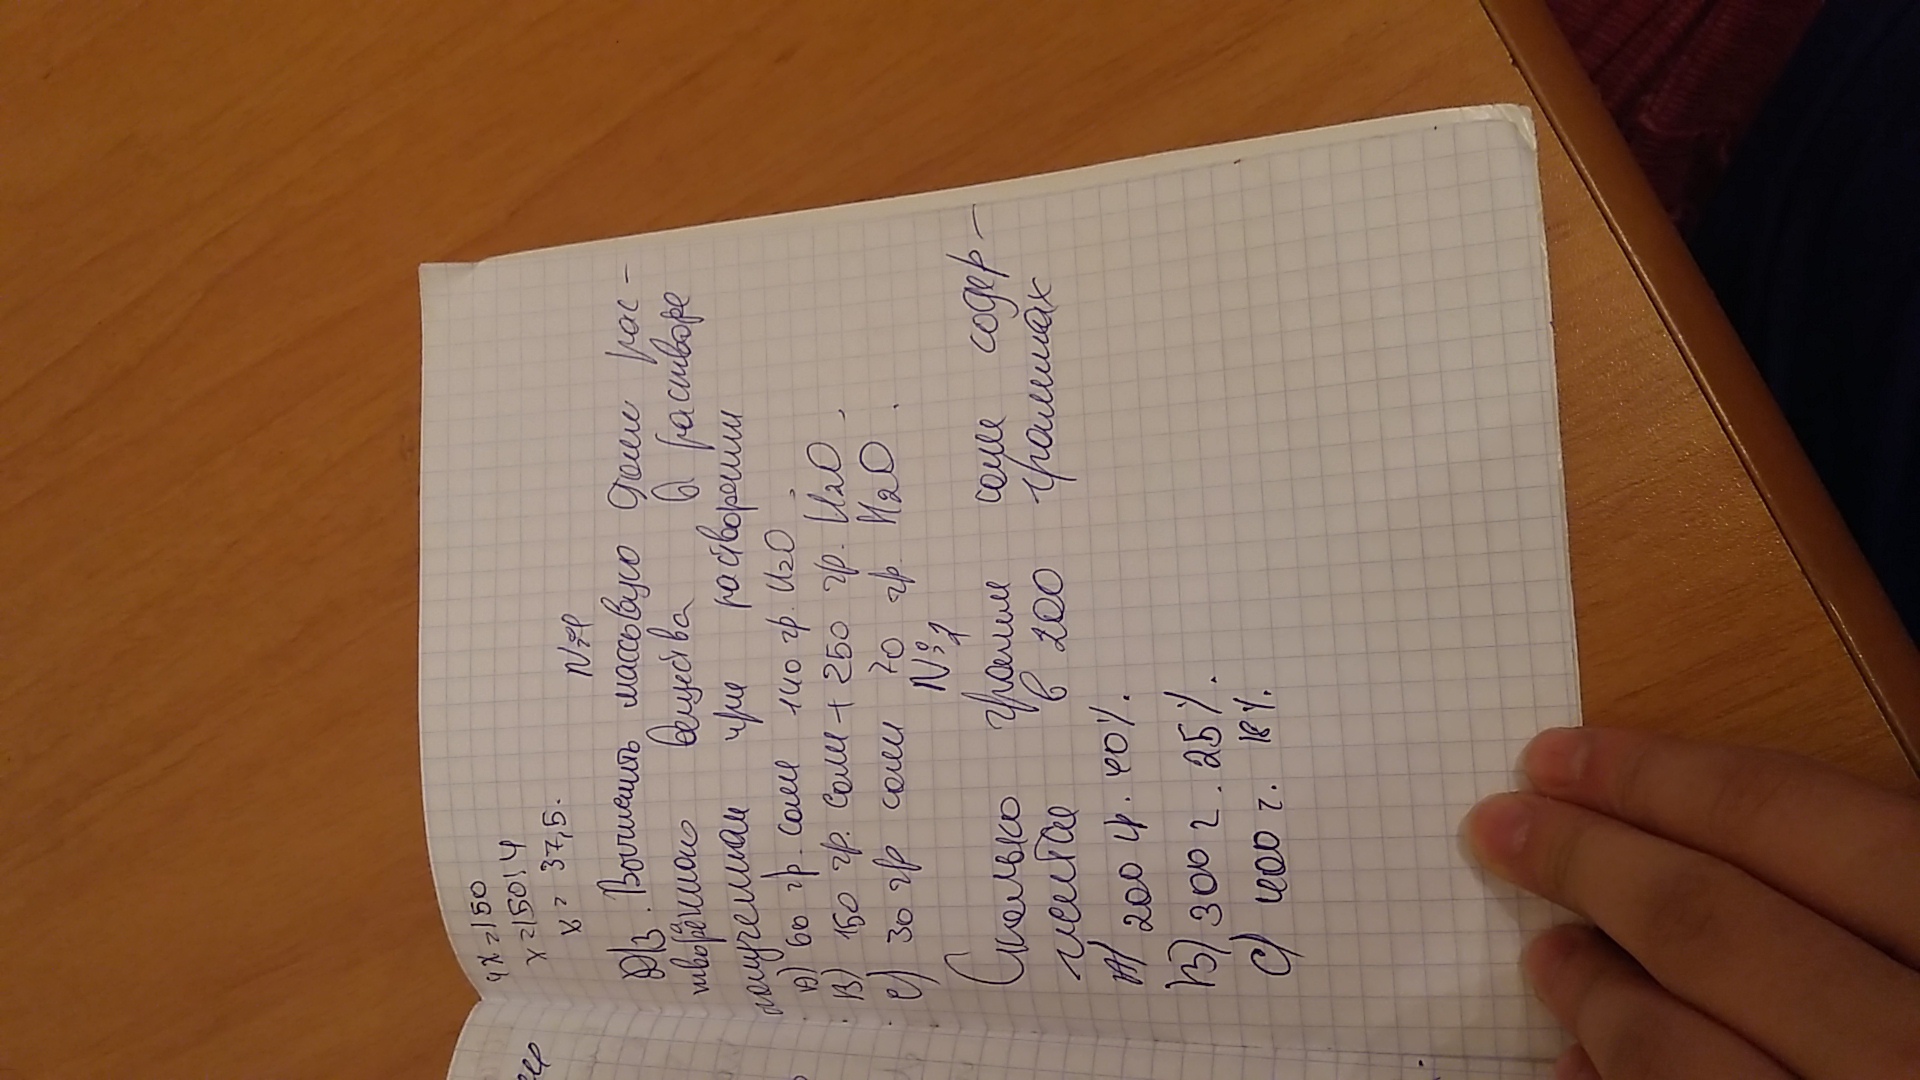 4x=150
x=150:4
x=37,5.
Д/З. Вычислить массовую долю рас-
творённого вещества в растворе
полученном при растворении
А) 60 гр. соли 140 гр. H2O.
В) 150 гр. соли + 250 гр. H2O.
С) 30 гр соли 70 гр. H2O.
Сколько грамм соли содер-
в 200 граммах
200 40%.
В) 300 г. 25%.
С) 400 г. 18%.